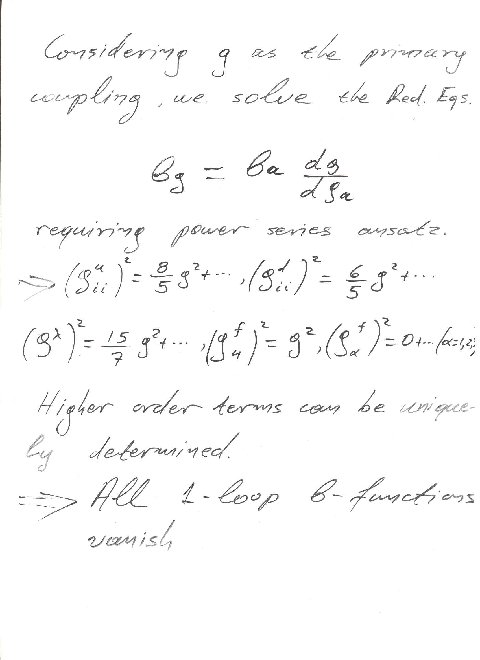 Considering g as the primary
coupling, we solve the Red. Eqs.
βg = βa dg/dga
requiring power series ansatz.
⇒ (g^u_ii)² = 8/5 g² + ···, (g^d_ii)² = 6/5 g² + ···
(g^λ)² = 15/7 g² + ···, (g^f_4)² = g², (g^f_α)² = 0 + ··· (α=1,2,
Higher order terms can be unique-
ly determined.
⇒ All 1-loop β-functions
vanish